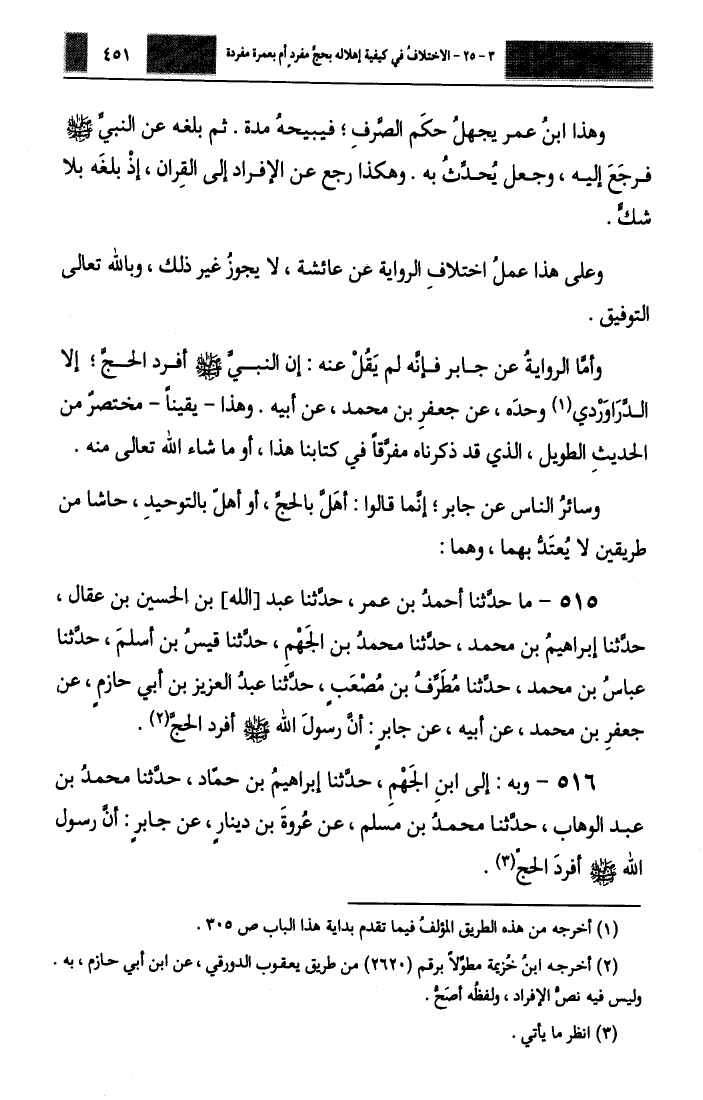 ٣ - ٢٥ - الاختلافُ في كيفية إهلاله بحجٍّ مفردٍ أم بعمرة مفردة ٤٥١
وهذا ابنُ عمر يجهلُ حكَم الصَّرفِ ؛ فيبيحهُ مدة . ثم بلغه عن النبيِّ ﷺ
فرجَعَ إليه ، وجعل يُحدِّثُ به . وهكذا رجع عن الإفراد إلى القِران ، إذْ بلغَه بلا
شكٍّ .
وعلى هذا عملُ اختلافِ الرواية عن عائشة ، لا يجوزُ غير ذلك ، وبالله تعالى
التوفيق .
وأمَّا الروايةُ عن جابر فإنَّه لم يَقُلْ عنه : إن النبيَّ ﷺ أفرد الحجَّ ؛ إلا
الدَّرَاوَرْدي(١) وحدَه ، عن جعفرِ بن محمد ، عن أبيه . وهذا - يقيناً - مختصرٌ من
الحديثِ الطويل ، الذي قد ذكرناه مفرَّقاً في كتابنا هذا ، أو ما شاء الله تعالى منه .
وسائرُ الناس عن جابر ؛ إنَّما قالوا : أهَلَّ بالحجِّ ، أو أهلّ بالتوحيدِ ، حاشا من
طريقين لا يُعتَدُّ بهما ، وهما :
٥١٥ - ما حدَّثنا أحمدُ بن عمر ، حدَّثنا عبد [الله] بن الحسين بن عقال ،
حدَّثنا إبراهيمُ بن محمد ، حدَّثنا محمدُ بن الجَهْمِ ، حدَّثنا قيسُ بن أسلمَ ، حدَّثنا
عباسُ بن محمد ، حدَّثنا مُطَرِّفُ بن مُصْعَبٍ ، حدَّثنا عبدُ العزيز بن أبي حازمٍ ، عن
جعفرِ بن محمد ، عن أبيه ، عن جابرٍ : أنَّ رسولَ الله ﷺ أفرد الحجَّ(٢) .
٥١٦ - وبه : إلى ابنِ الجَهْمِ ، حدَّثنا إبراهيمُ بن حمّاد ، حدَّثنا محمدُ بن
عبد الوهاب ، حدَّثنا محمدُ بن مسلم ، عن عُروةَ بن دينارٍ ، عن جابرٍ : أنَّ رسول
الله ﷺ أفردَ الحجَّ(٣) .
(١) أخرجه من هذه الطريق المؤلفُ فيما تقدم بداية هذا الباب ص ٣٠٥ .
(٢) أخرجه ابنُ خُزيمة مطوَّلاً برقم (٢٦٢٠) من طريق يعقوب الدورقي ، عن ابن أبي حازم ، به .
وليس فيه نصُّ الإفراد ، ولفظُه أصَحُّ .
(٣) انظر ما يأتي .